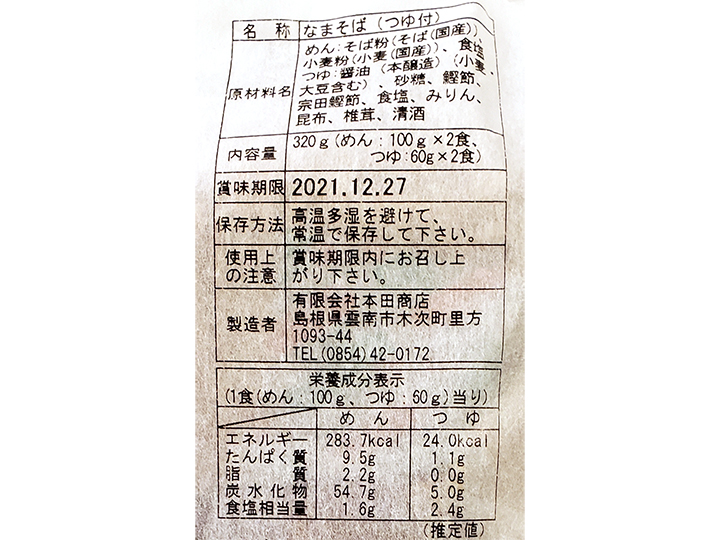 名称 なまそば（つゆ付）
原材料名 めん：そば粉（そば（国産））、
小麦粉（小麦（国産））、食塩
つゆ：醤油（本醸造）（小麦、
大豆含む）、砂糖、鰹節、
宗田鰹節、食塩、みりん、
昆布、椎茸、清酒
内容量 320g（めん：100g×2食、
つゆ：60g×2食）
賞味期限 2021.12.27
保存方法 高温多湿を避けて、
常温で保存して下さい。
使用上の注意 賞味期限内にお召し上
がり下さい。
製造者 有限会社本田商店
島根県雲南市木次町里方
1093-44
TEL(0854)42-0172
栄養成分表示
(1食(めん：100g、つゆ：60g)当り)
めん つゆ
エネルギー 283.7kcal 24.0kcal
たんぱく質 9.5g 1.1g
脂質 2.2g 0.0g
炭水化物 54.7g 5.0g
食塩相当量 1.6g 2.4g
(推定値)